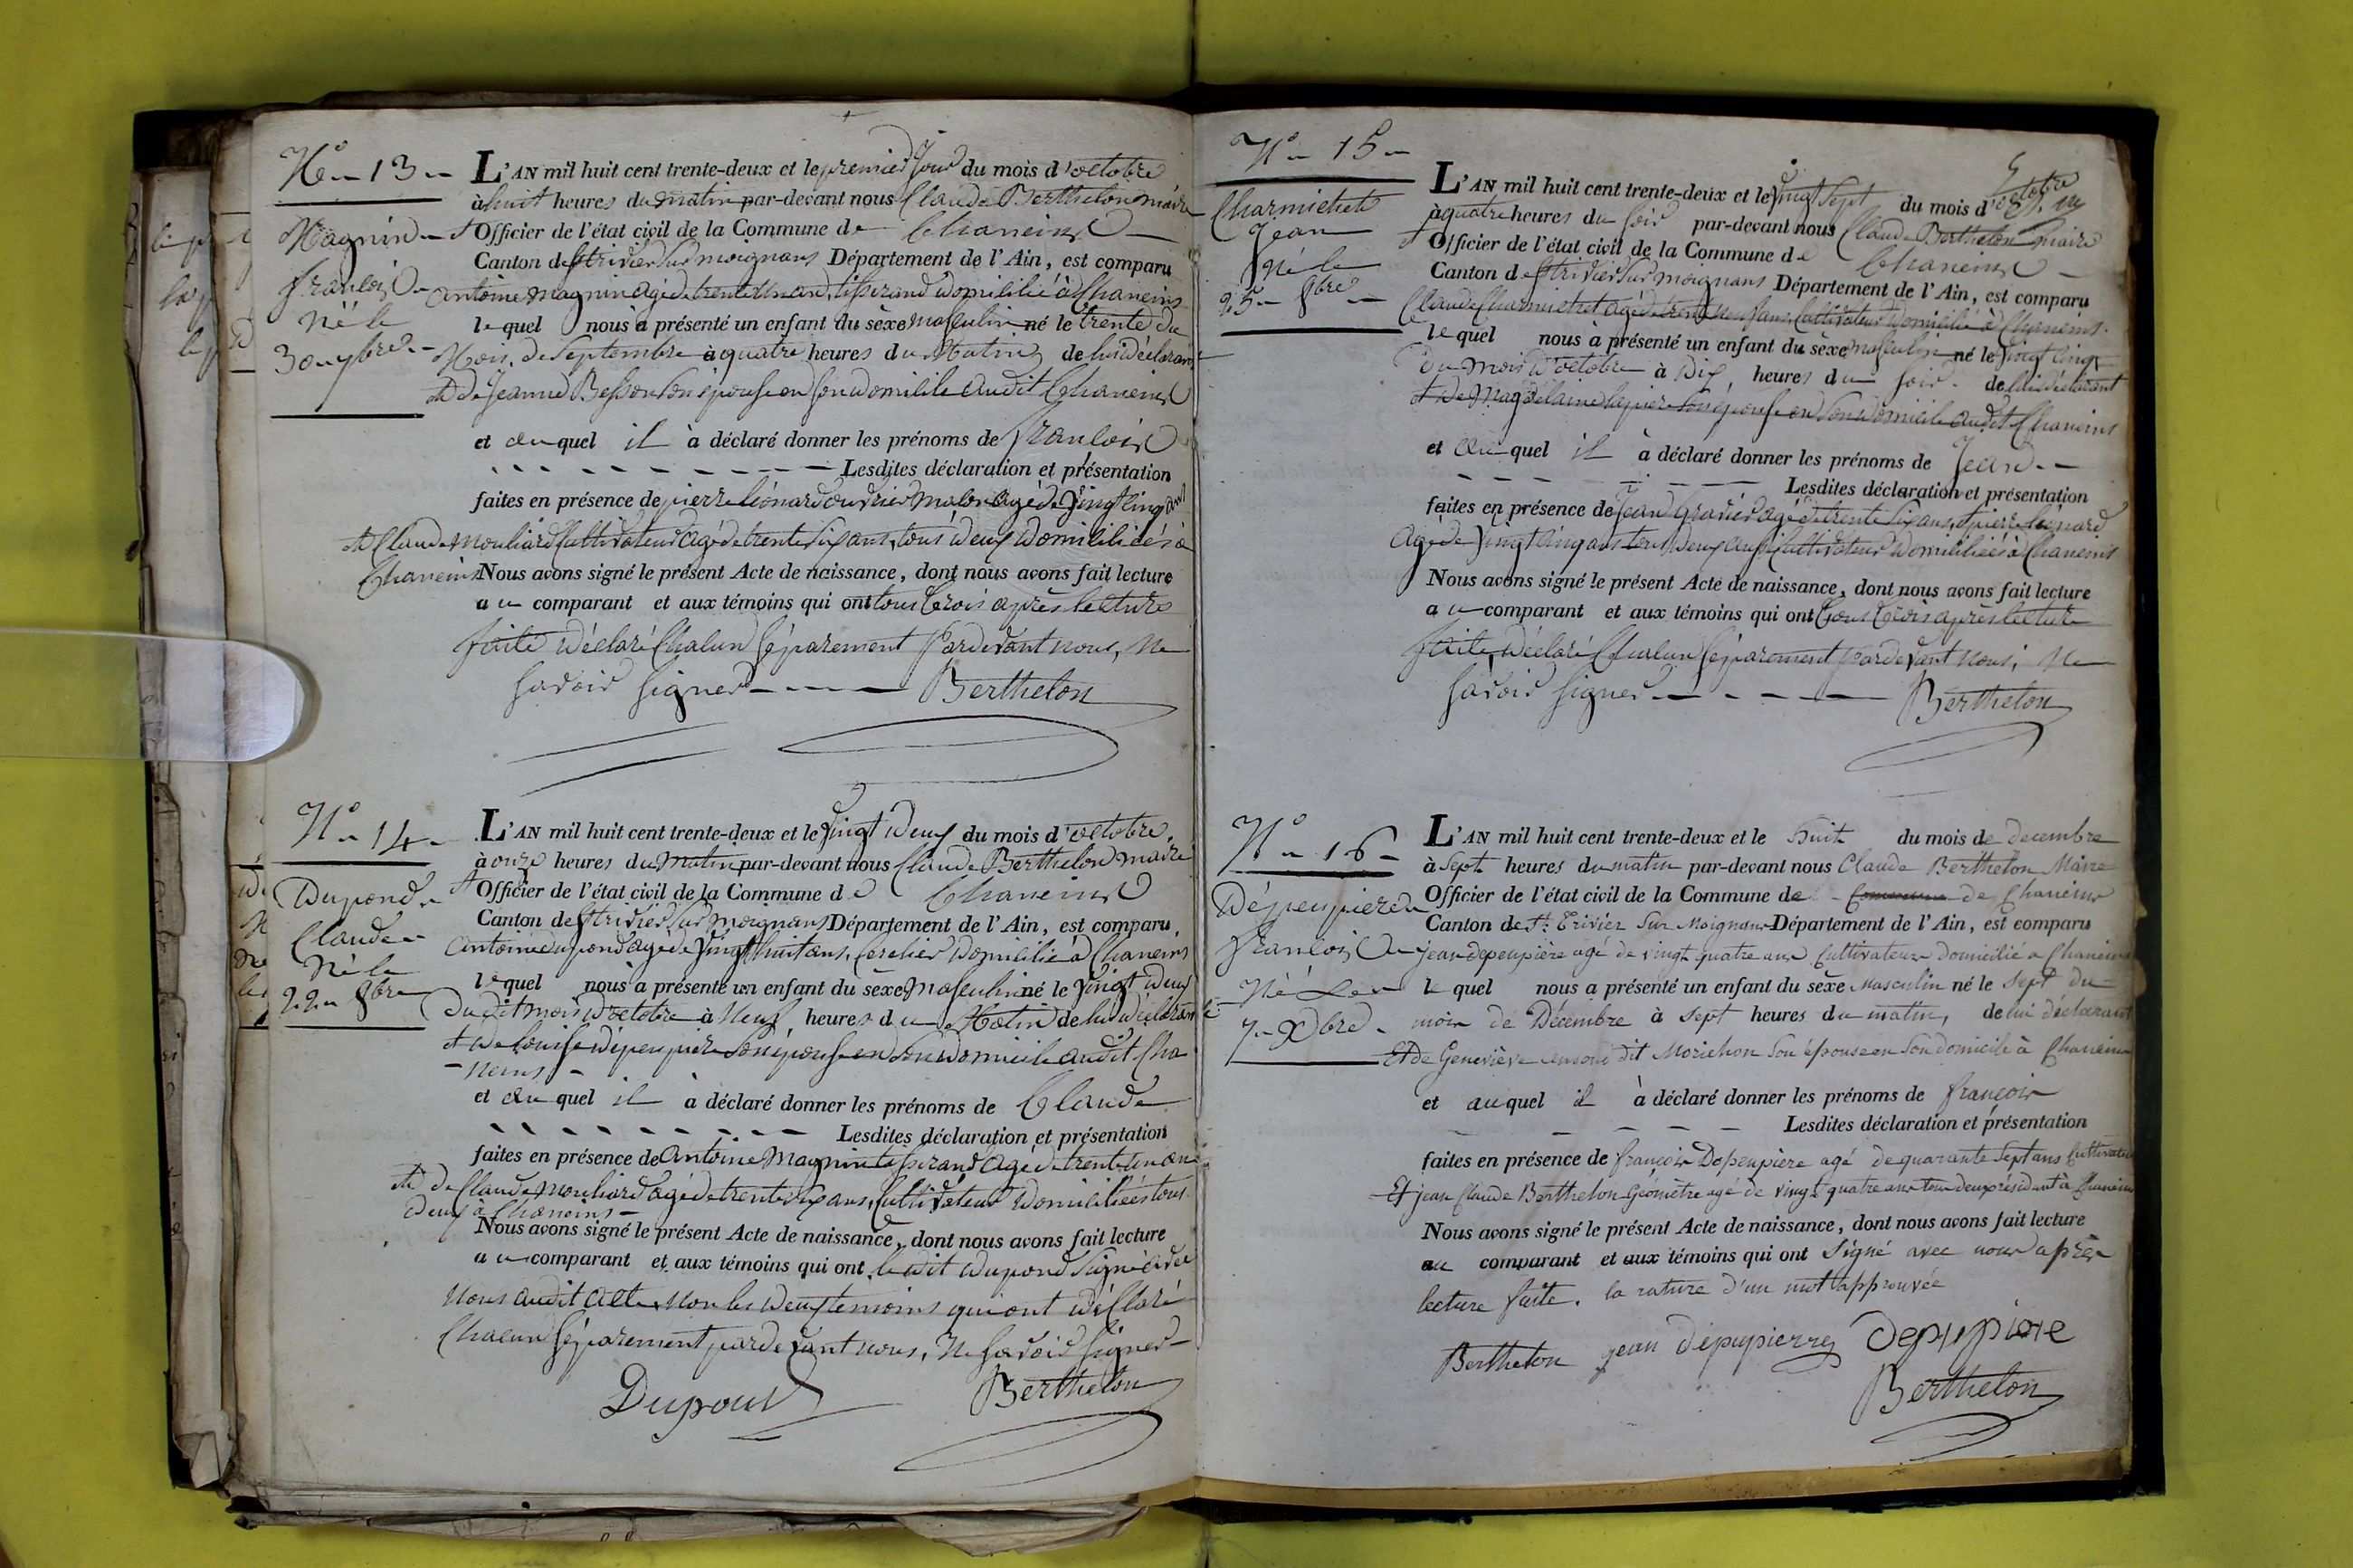 N° 13
Magnin
françois
Né le
30 7bre
L'AN mil huit cent trente-deux et le premier jour du mois d'octobre
à huit heures du matin par-devant nous Claude Berthelon maire
et Officier de l'état civil de la Commune de Chaneins
Canton de St trivier sur moignans Département de l'Ain, est comparu
antoine magnin agé de trente un ans, tisserand domicilié à Chaneins
lequel nous a présenté un enfant du sèxe masculin né le trente du
Mois de Septembre à quatre heures du Matin de lui déclarant
et de Jeanne Besson son épouse en son domicile audit Chaneins
et auquel il à déclaré donner les prénoms de françois
Lesdites déclaration et présentation
faites en présence de pierre Léonard ouvrier maçon agé de vingt cinq ans
et Claude Mouliard Cultivateur agé de trente six ans, tous deux domiciliés à
Chaneins Nous avons signé le présent Acte de naissance, dont nous avons fait lecture
au comparant et aux témoins qui ont tous trois après lecture
faite déclaré chacun séparement pardevant nous, ne
savoir signer Berthelon
N° 14
Dupond
Claude
Né le
22 8bre
L'AN mil huit cent trente-deux et le vingt deux du mois d'octobre
à onze heures du matin par-devant nous Claude Berthelon maire
et Officier de l'état civil de la Commune de Chaneins
Canton de St trivier sur moignans Département de l'Ain, est comparu
antoine dupond agé de vingt huit ans, domicilié à Chaneins
lequel nous a présenté un enfant du sèxe masculin né le vingt deux
du dit mois d'octobre à Neuf heures du Matin de lui déclarant
et de louise dépeupière son épouse en son domicile audit Cha
-neins
et auquel il à déclaré donner les prénoms de Claude
Lesdites déclaration et présentation
faites en présence de antoine Magnin tisserand agé de trente un ans
et de Claude Mouliard agé de trente six ans, Cultivateur domiciliés tous
deux à Chaneins
Nous avons signé le présent Acte de naissance, dont nous avons fait lecture
au comparant et aux témoins qui ont le dit dupond signé avec
Nous audit acte, non les deux témoins qui ont déclaré
Chacun séparement pardevant nous, ne savoir signer
Dupond Berthelon
N° 15
Charmichet
Jean
Né le
25 8bre
L'AN mil huit cent trente-deux et le vingt sept du mois d'octobre
à quatre heures du soir par-devant nous Claude Berthelon maire
et Officier de l'état civil de la Commune de Chaneins
Canton de St trivier sur moignans Département de l'Ain, est comparu
Claude Charmichet agé de trente neuf ans, Cultivateur domicilié à Chaneins
lequel nous à présenté un enfant du sèxe masculin né le vingt cinq
du mois d'octobre à Dix heures du soir de lui déclarant
et de Magdelaine son épouse en son domicile audit Chaneins
et auquel il à déclaré donner les prénoms de Jean
Lesdites déclaration et présentation
faites en présence de Jean Gravier agé de trente six ans, et pierre Léonard
agé de vingt cinq ans tous deux aussi Cultivateurs domiciliés à Chaneins
Nous avons signé le présent Acte de naissance, dont nous avons fait lecture
au comparant et aux témoins qui ont tous trois après lecture
faite, déclaré Chacun séparement pardevant nous, ne
savoir signer Berthelon
N° 16
Dépeupière
françois
Né Le
7 Xbre
L'AN mil huit cent trente-deux et le huit du mois de decembre
à Sept heures du matin par-devant nous Claude Berthelon Maire
Officier de l'état civil de la Commune de Commune de Chaneins
Canton de St Trivier Sur Moignans Département de l'Ain, est comparu
jean depeupière agé de vingt quatre ans Cultivateur domicilié à Chaneins
lequel nous a présenté un enfant du sèxe masculin né le sept du
mois de Décembre à sept heures du matin, de lui déclarant
Et de Geneviève dit Morichon son épouse en son domicile à Chaneins
et auquel il à déclaré donner les prénoms de françois
Lesdites déclaration et présentation
faites en présence de françois Depeupière agé de quarante Sept ans Cultivateur
Et jean Claude Berthelon Géomètre agé de vingt quatre ans tous deux résidant à Chaneins
Nous avons signé le présent Acte de naissance, dont nous avons fait lecture
au comparant et aux témoins qui ont Signé avec nous après
lecture faite. la rature d'un mot approuvée
Berthelon jean dépupierre Depupiere
Berthelon